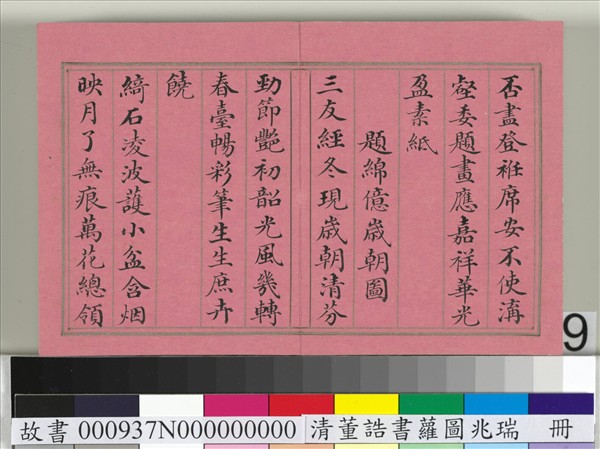 否盡登袵席安不使溝
壑委題畫應嘉祥華光
盈素紙
題綿億歲朝圖
三友經冬現歲朝清芬
勁節艷初韶光風幾轉
春臺暢彩筆生生庶卉
饒
綺石淩波護小盆含烟
映月了無痕萬花總領
9
故書 000937N000000000 清董誥書蘿圖兆瑞 冊